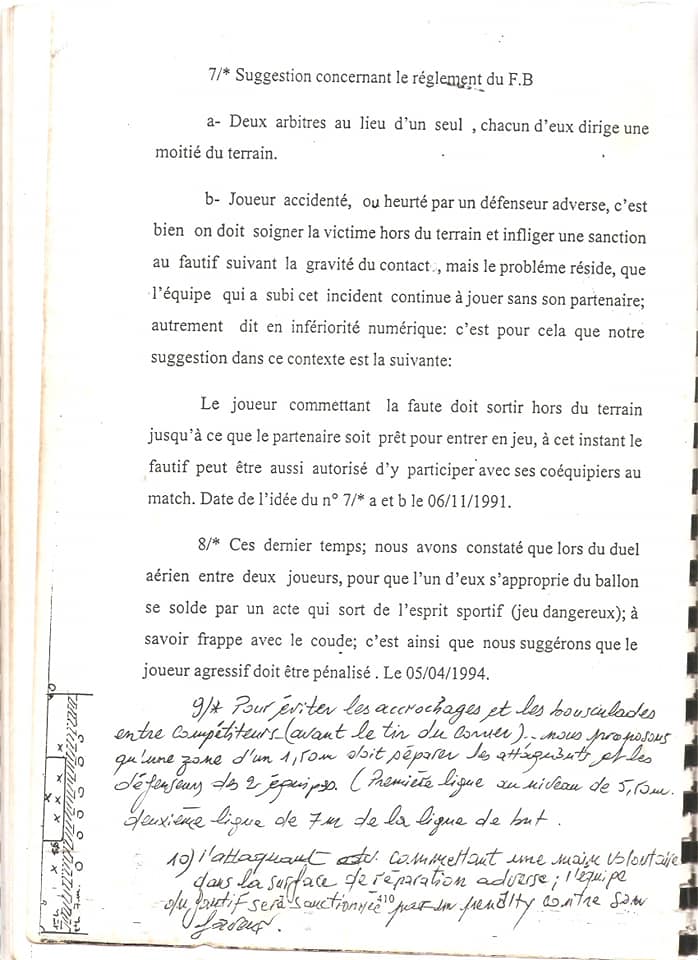 7/* Suggestion concernant le réglement du F.B
a- Deux arbitres au lieu d'un seul , chacun d'eux dirige une
moitié du terrain.
b- Joueur accidenté, ou heurté par un défenseur adverse, c'est
bien on doit soigner la victime hors du terrain et infliger une sanction
au fautif suivant la gravité du contact , mais le probléme réside, que
l'équipe qui a subi cet incident continue à jouer sans son partenaire;
autrement dit en infériorité numérique: c'est pour cela que notre
suggestion dans ce contexte est la suivante:
Le joueur commettant la faute doit sortir hors du terrain
jusqu'à ce que le partenaire soit prêt pour entrer en jeu, à cet instant le
fautif peut être aussi autorisé d'y participer avec ses coéquipiers au
match. Date de l'idée du n° 7/* a et b le 06/11/1991.
8/* Ces dernier temps; nous avons constaté que lors du duel
aérien entre deux joueurs, pour que l'un d'eux s'approprie du ballon
se solde par un acte qui sort de l'esprit sportif (jeu dangereux); à
savoir frappe avec le coude; c'est ainsi que nous suggérons que le
joueur agressif doit être pénalisé . Le 05/04/1994.
9/* Pour éviter les accrochages et les bousculades
entre compétiteurs (avant le tir du corner)... nous proposons
qu'une zone d'un 1,50m doit séparer les attaquants et les
défenseurs des 2 équipes. (Première ligue au niveau de 5,50m.
deuxième ligue de 7m de la ligne de but .
10) l'attaquant commettant une main volontaire
dans la surface de réparation adverse; l'équipe
du fautif sera sanctionnée 410 par un penalty contre son